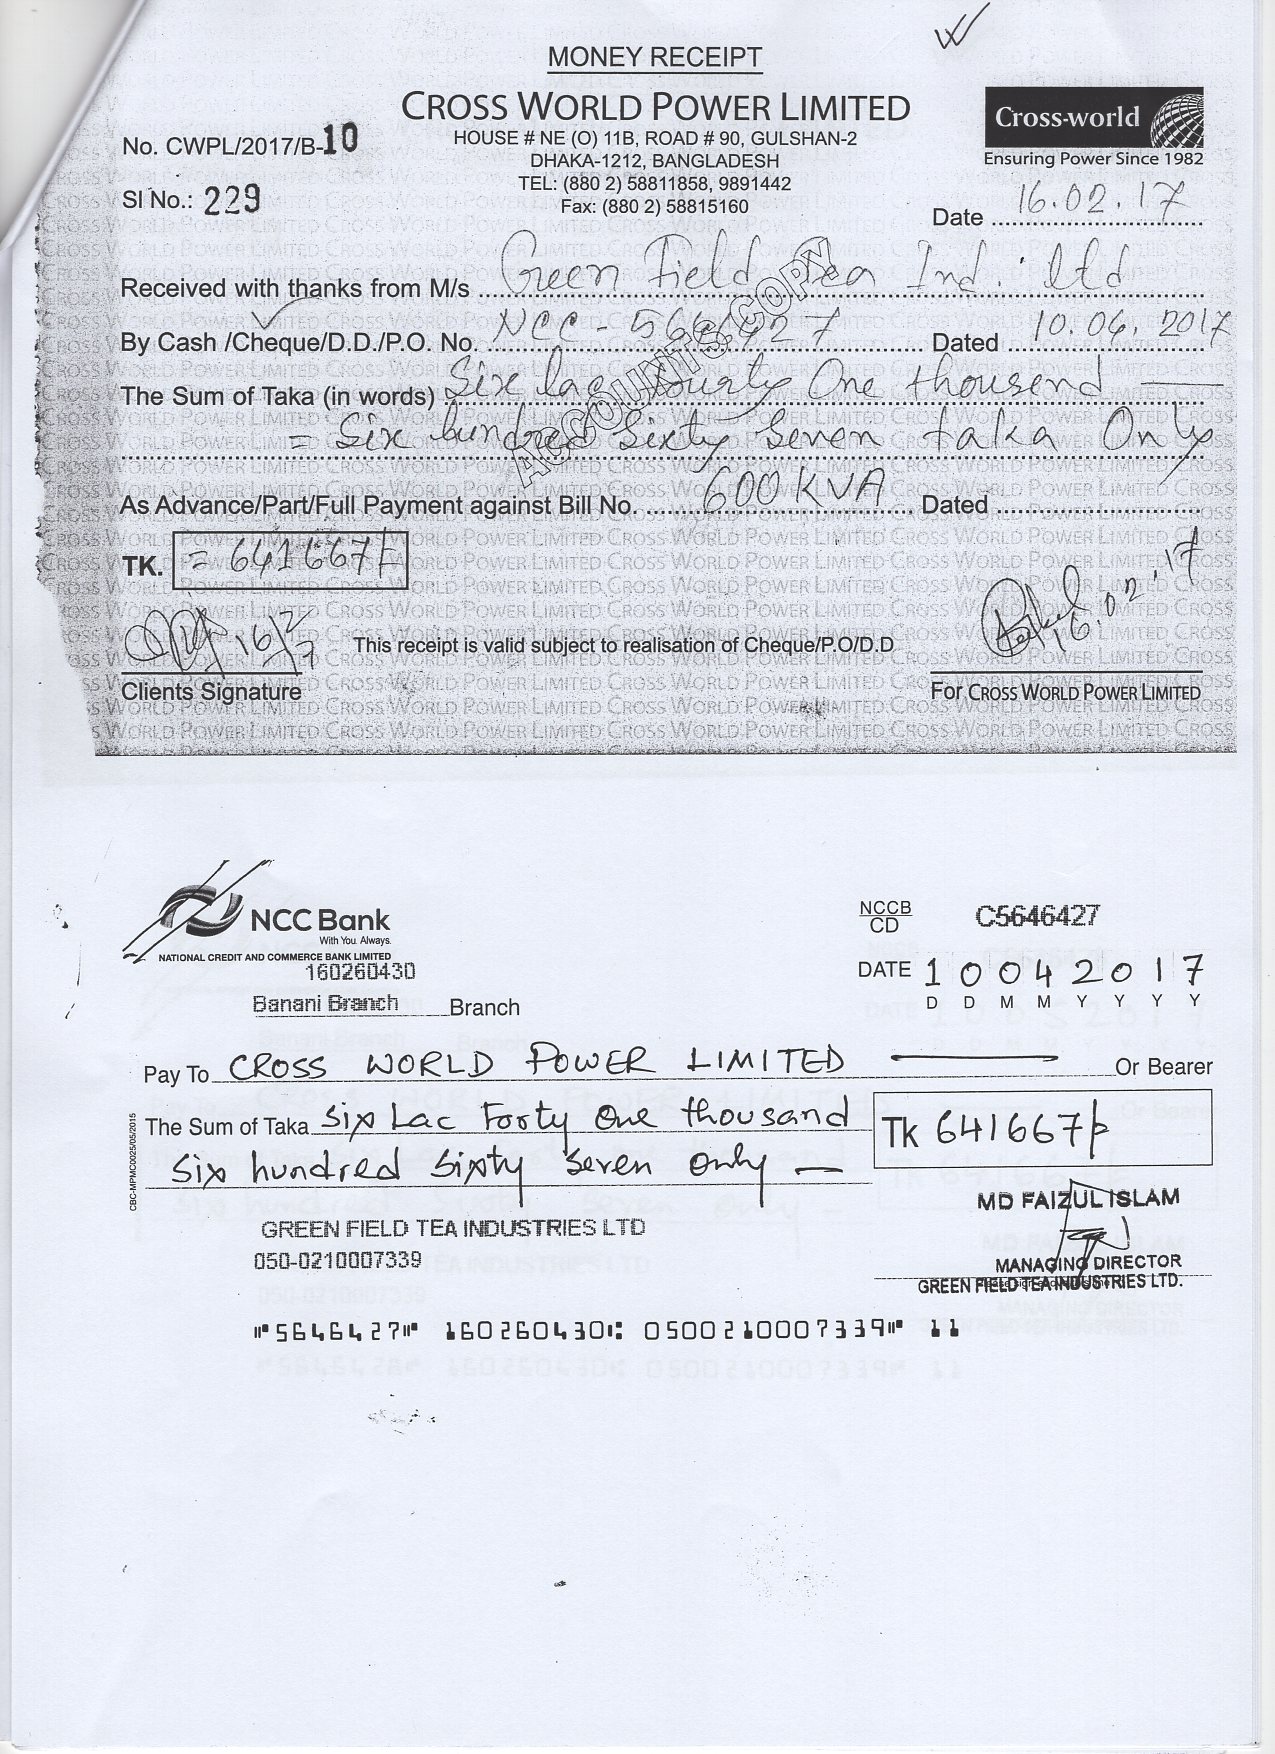 MONEY RECEIPT
CROSS WORLD POWER LIMITED
HOUSE # NE (O) 11B, ROAD # 90, GULSHAN-2
DHAKA-1212, BANGLADESH
TEL: (880 2) 58811858, 9891442
Fax: (880 2) 58815160
Cross-world
Ensuring Power Since 1982
No. CWPL/2017/B-10
Sl No.: 229
Date 16.02.17
Received with thanks from M/s Green Field Tea Ind. ltd
By Cash /Cheque/D.D./P.O. No. NCC - 5646427 Dated 10.04.2017
The Sum of Taka (in words) Six lac Fourty One thousend
= Six hundred Sixty Seven taka Only
ACCOUNTS COPY
As Advance/Part/Full Payment against Bill No. 600KVA Dated
TK. = 641667/=
16/2/7
16.02.17
This receipt is valid subject to realisation of Cheque/P.O/D.D
Clients Signature
For CROSS WORLD POWER LIMITED
NCC Bank
With You. Always.
NATIONAL CREDIT AND COMMERCE BANK LIMITED
160260430
Banani Branch Branch
NCCB
CD
C5646427
DATE 10042017
D D M M Y Y Y Y
Pay To CROSS WORLD POWER LIMITED Or Bearer
The Sum of Taka Six Lac Forty One thousand
Six hundred Sixty Seven only
Tk 641667/=
CBC-MPMC0025/05/2015
MD FAIZUL ISLAM
MANAGING DIRECTOR
GREEN FIELD TEA INDUSTRIES LTD.
GREEN FIELD TEA INDUSTRIES LTD
050-0210007339
⑈5646427⑈ 160260430⑆ 0500210007339⑈ 11